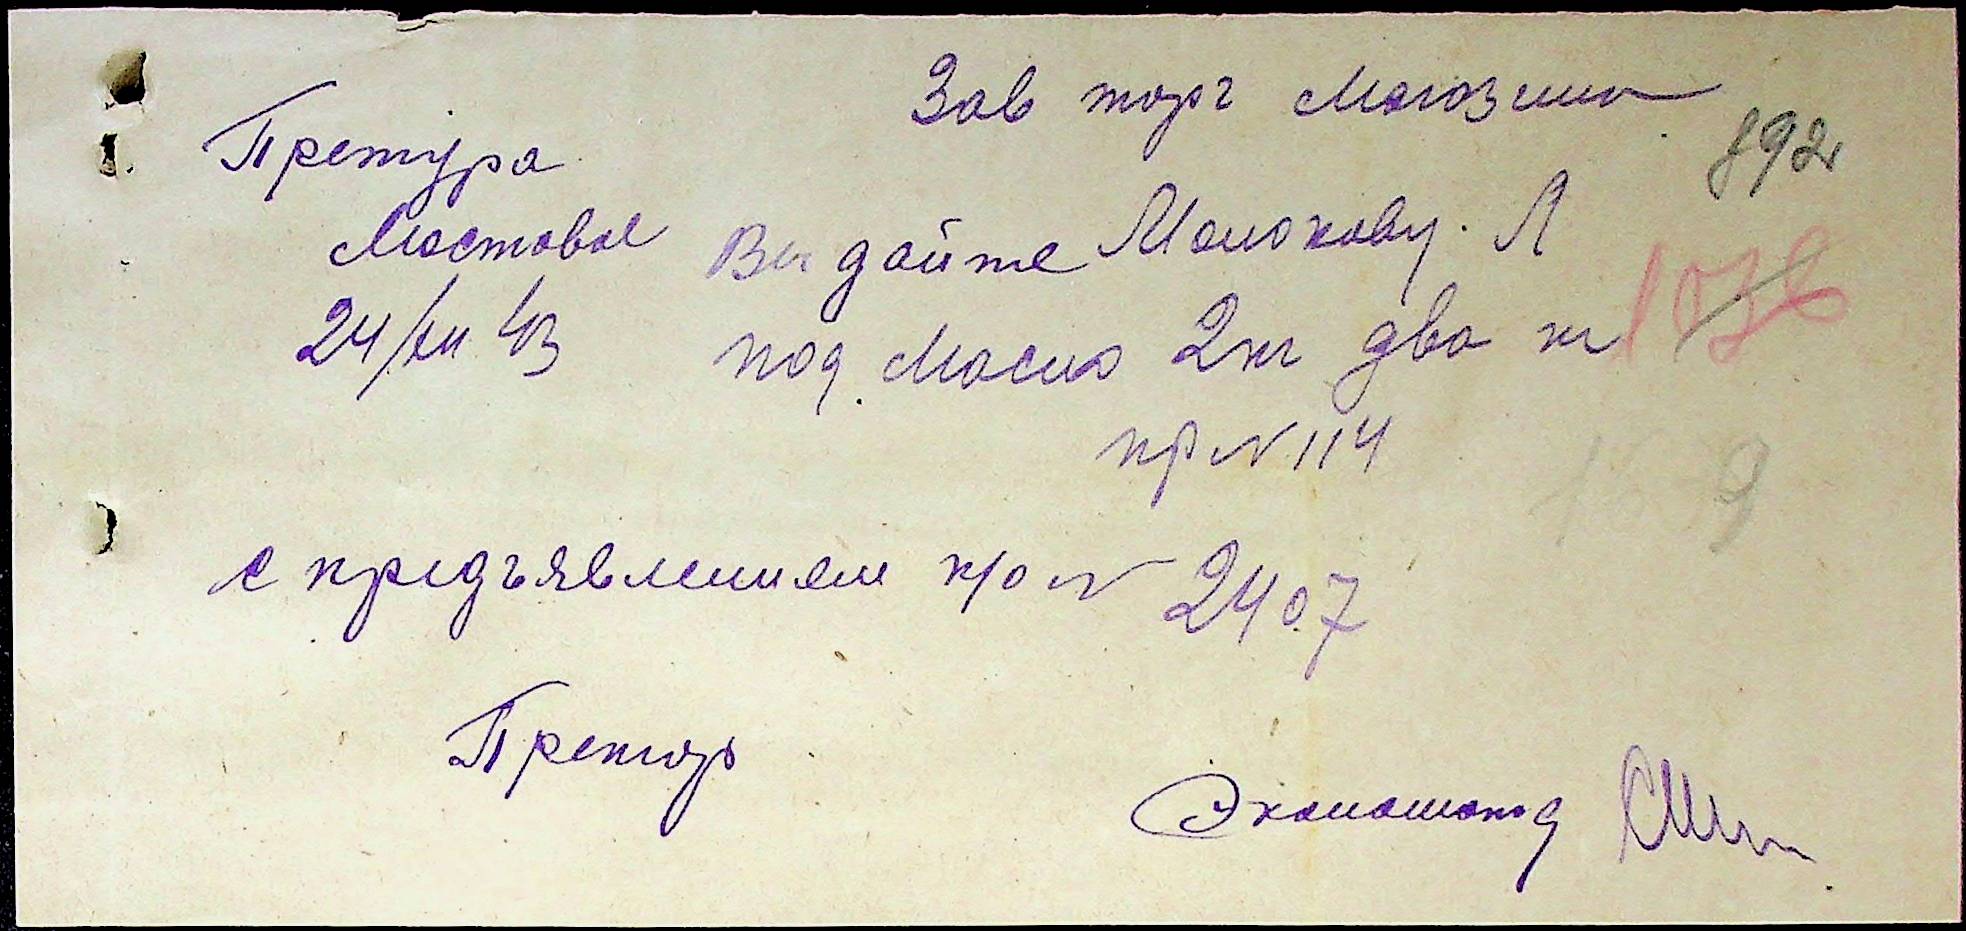 Зав торг Магозина
892
Претура
Мостовое
24/XII 43
Выдайте Молокову. Л
под. Масло 2кг два кг
пр № 114
с предъявлением к/о № 2407
Претор
Экономотд